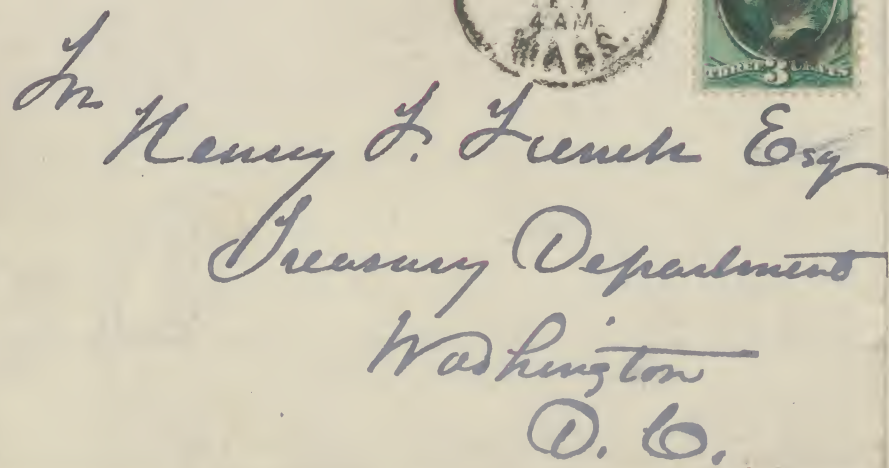 4 AM
MASS.
THREE 3 CENTS
Henry F. French Esq
Treasury Department
Washington
D. C.